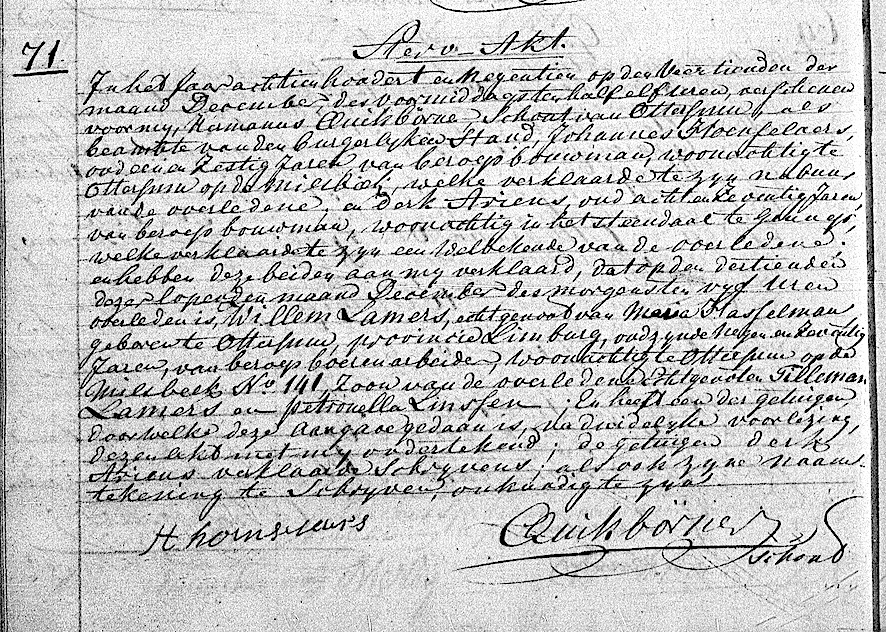 71
Sterv-Akt.
In het Jaar achttien hondert en Negentien op den Veertienden der
maand December des voormiddags ten half elf uren, verschenen
voor my, Hermanus Quikborne Schout van Ottersum, als
beamte van den Burgerlyken Stand, Johannes
oud een en Zestig Jaren, van beroep bouwman, woonachtig te
Ottersum op de Milsbeek, welke verklaarde te zyn nabuur
van de overledene, en Derk Ariens, oud acht en Zeventig Jaren
van beroep bouwman, woonachtig in het steendael te Gennep,
welke verklaarde te zyn een Welbekende van de overledene.
en hebben deze beiden aan my verklaard, dat op den dertienden
dezer lopenden maand December des morgens ten vyf uren
overleden is, Willem Lamers, echtgenoot van Maria Hasselman
geboren te Ottersum, provincie Limburg, oud zynde Negen en Zeventig
Jaren, van beroep boeren arbeider, woonachtig te Ottersum op de
Milsbeek No 141, Zoon van de overledene Echtgenoten Tilleman
Lamers en petronella Linssen; En heeft een der getuigen
door welke deze Aangave gedaan is, na duidelyke voorlezing,
dezen Akt met my ondertekend; de getuigen derk
Ariens verklaarde Schryvens; als ook zyne naam-
tekening te Schryven, onkundig te zyn.
Quikborner
Schout